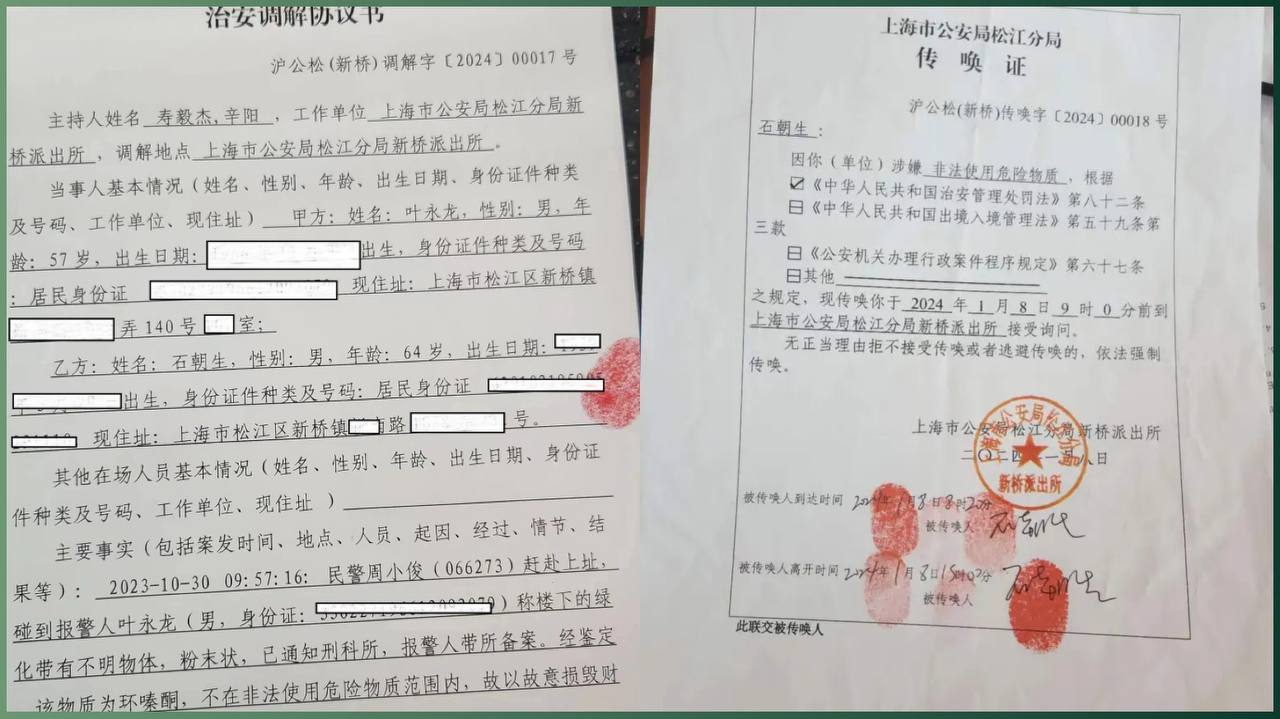 治安调解协议书
沪公松(新桥)调解字〔2024〕00017 号
主持人姓名 寿毅杰,辛阳 ，工作单位 上海市公安局松江分局新
桥派出所 ，调解地点 上海市公安局松江分局新桥派出所 。
当事人基本情况（姓名、性别、年龄、出生日期、身份证件种类
及号码、工作单位、现住址） 甲方：姓名：叶永龙，性别：男，年
龄：57 岁，出生日期： 出生，身份证件种类及号码
：居民身份证 现住址：上海市松江区新桥镇
弄 140 号 室；
乙方：姓名：石朝生，性别：男，年龄：64 岁，出生日期：
出生，身份证件种类及号码：居民身份证
现住址：上海市松江区新桥镇 路 号。
其他在场人员基本情况（姓名、性别、年龄、出生日期、身份证
件种类及号码、工作单位、现住址 ）
主要事实（包括案发时间、地点、人员、起因、经过、情节、结
果等）： 2023-10-30 09:57:16: 民警周小俊（066273）赶赴上址，
碰到报警人叶永龙（男，身份证： ）称楼下的绿
化带有不明物体，粉末状，已通知刑科所，报警人带所备案。经鉴定
该物质为环嗪酮，不在非法使用危险物质范围内，故以故意损毁财
上海市公安局松江分局
传 唤 证
沪公松(新桥)传唤字〔2024〕00018 号
石朝生：
因你（单位）涉嫌 非法使用危险物质 ，根据
☑《中华人民共和国治安管理处罚法》第八十二条
《中华人民共和国出境入境管理法》第五十九条第
三款
《公安机关办理行政案件程序规定》第六十七条
其他
之规定，现传唤你于 2024 年 1 月 8 日 9 时 0 分前到
上海市公安局松江分局新桥派出所 接受询问。
无正当理由拒不接受传唤或者逃避传唤的，依法强制
传唤。
上海市公安局松江分局新桥派出所
二〇二四年一月八日
上海市公安局松江分局
新桥派出所
被传唤人到达时间 2024年1月8日8时20分
被传唤人 石朝生
被传唤人离开时间 2024年1月8日15时02分
被传唤人 石朝生
此联交被传唤人